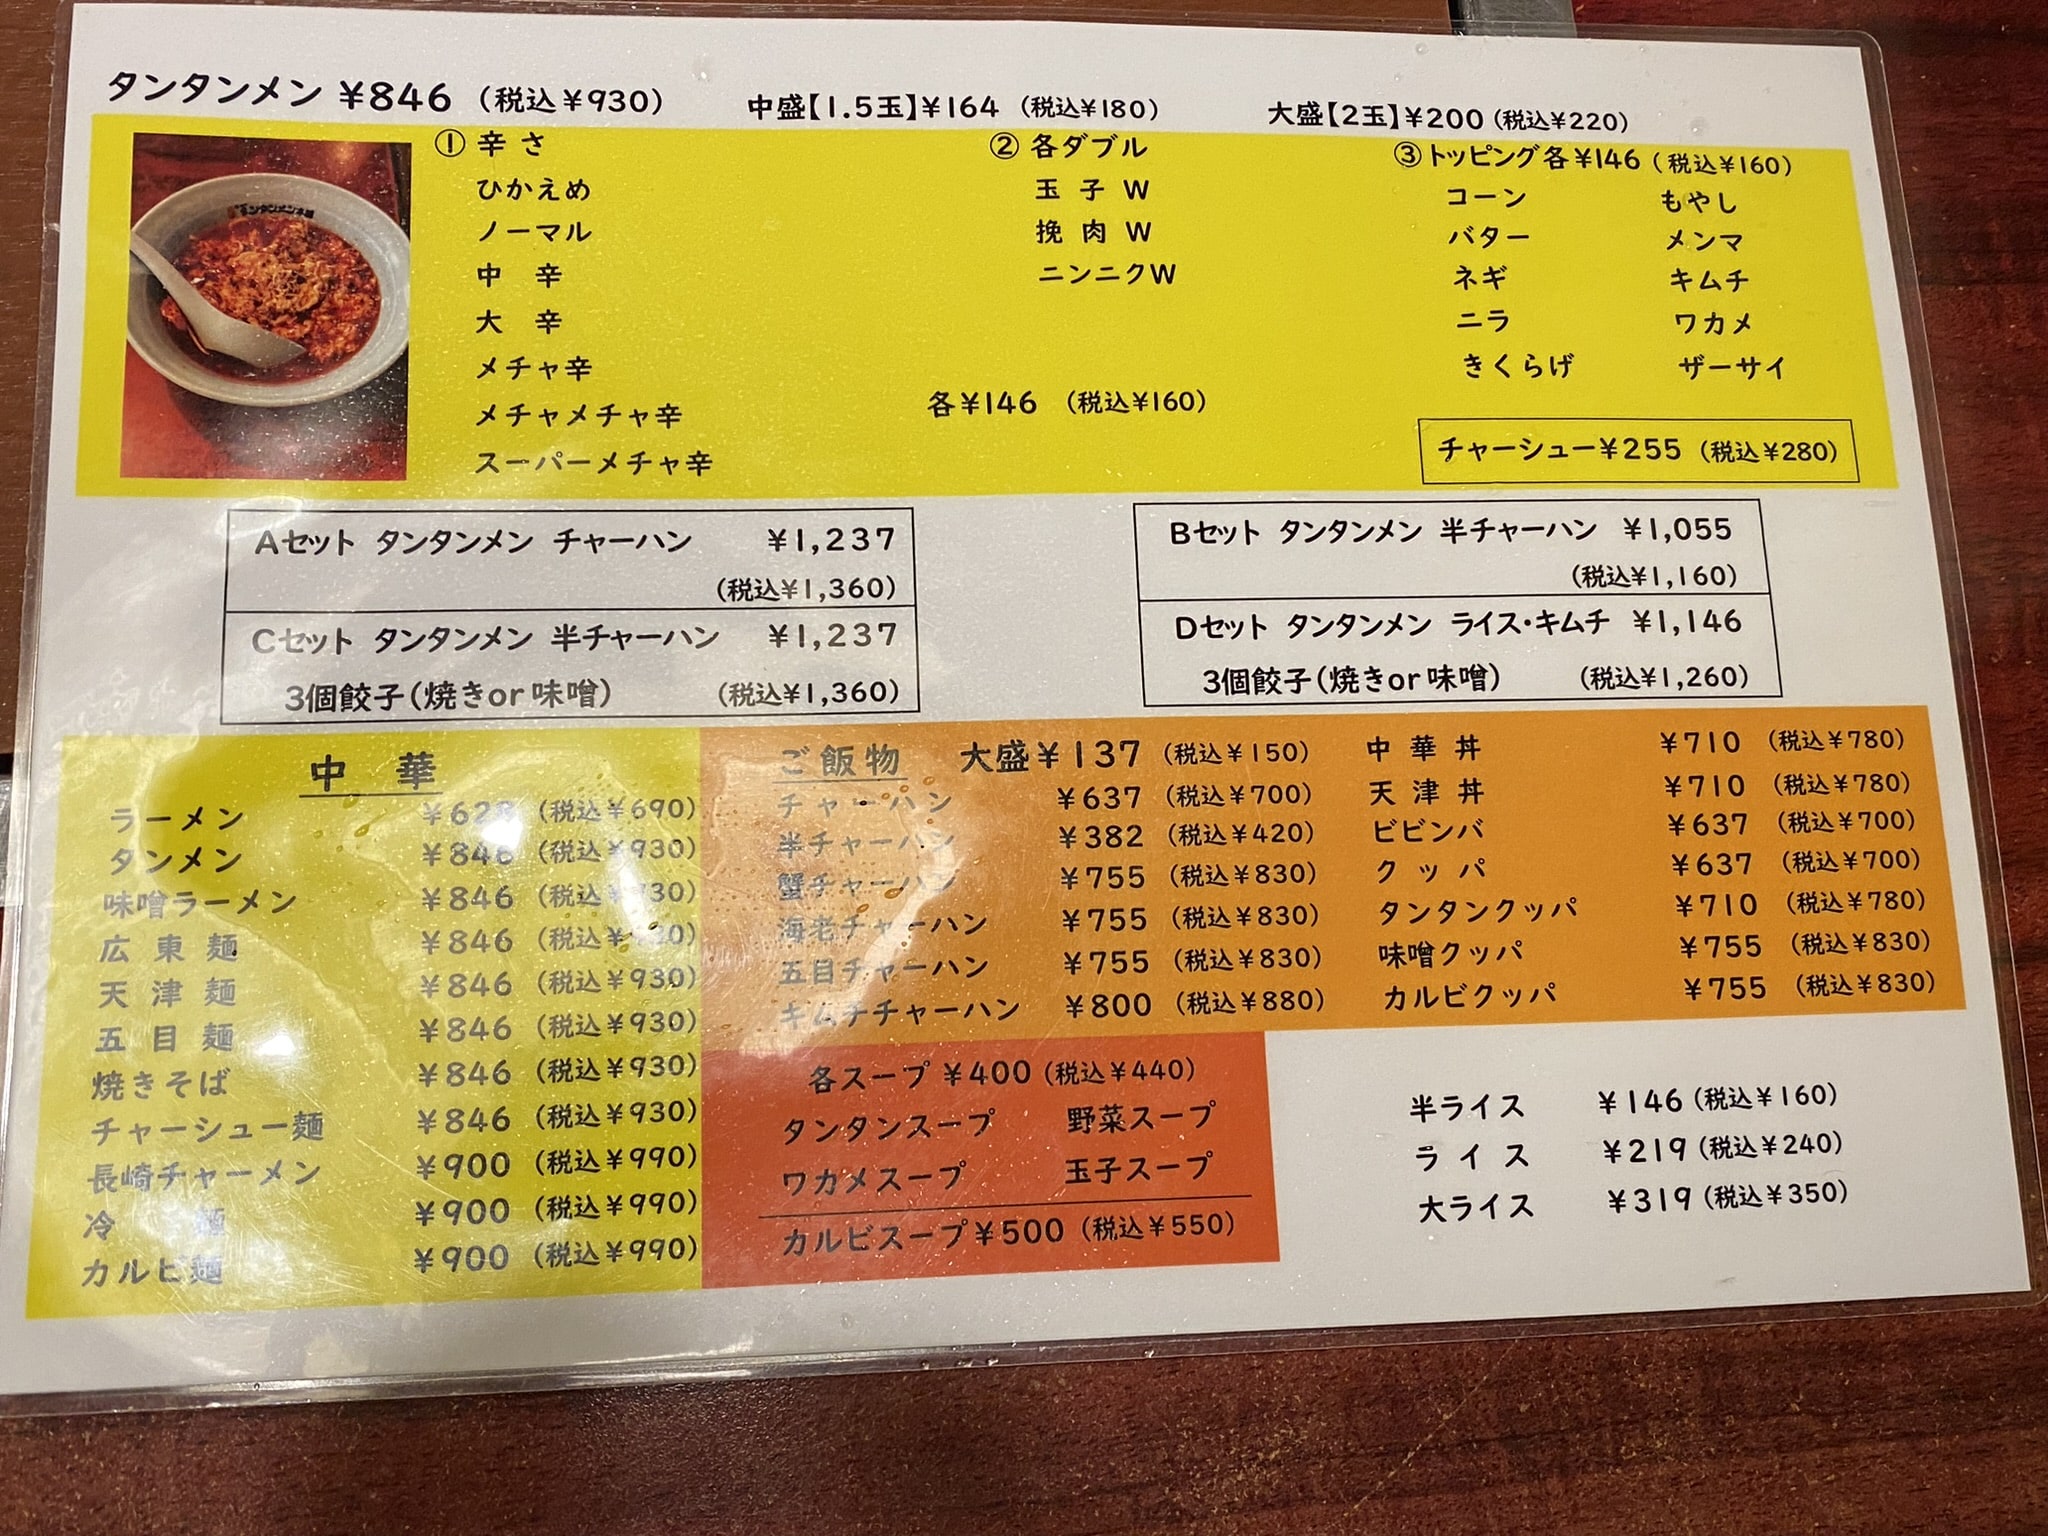 タンタンメン ¥846 (税込¥930) 中盛【1.5玉】¥164 (税込¥180) 大盛【2玉】¥200 (税込¥220)
タンタンメン本舗
① 辛さ
ひかえめ
ノーマル
中 辛
大 辛
メチャ辛
メチャメチャ辛
スーパーメチャ辛
② 各ダブル
玉 子 W
挽 肉 W
ニンニクW
各¥146 (税込¥160)
③トッピング各¥146 (税込¥160)
コーン もやし
バター メンマ
ネギ キムチ
ニラ ワカメ
きくらげ ザーサイ
チャーシュー¥255 (税込¥280)
Aセット タンタンメン チャーハン ¥1,237
(税込¥1,360)
Bセット タンタンメン 半チャーハン ¥1,055
(税込¥1,160)
Cセット タンタンメン 半チャーハン ¥1,237
3個餃子(焼きor味噌) (税込¥1,360)
Dセット タンタンメン ライス・キムチ ¥1,146
3個餃子(焼きor味噌) (税込¥1,260)
中 華
ラーメン ¥628 (税込¥690)
タンメン ¥846 (税込¥930)
味噌ラーメン ¥846 (税込¥930)
広 東 麺 ¥846 (税込¥930)
天 津 麺 ¥846 (税込¥930)
五 目 麺 ¥846 (税込¥930)
焼きそば ¥846 (税込¥930)
チャーシュー麺 ¥846 (税込¥930)
長崎チャーメン ¥900 (税込¥990)
冷 麺 ¥900 (税込¥990)
カルビ麺 ¥900 (税込¥990)
ご飯物 大盛¥137 (税込¥150)
チャーハン ¥637 (税込¥700)
半チャーハン ¥382 (税込¥420)
蟹チャーハン ¥755 (税込¥830)
海老チャーハン ¥755 (税込¥830)
五目チャーハン ¥755 (税込¥830)
キムチチャーハン ¥800 (税込¥880)
中 華 丼 ¥710 (税込¥780)
天 津 丼 ¥710 (税込¥780)
ビビンバ ¥637 (税込¥700)
ク ッ パ ¥637 (税込¥700)
タンタンクッパ ¥710 (税込¥780)
味噌クッパ ¥755 (税込¥830)
カルビクッパ ¥755 (税込¥830)
各スープ ¥400 (税込¥440)
タンタンスープ 野菜スープ
ワカメスープ 玉子スープ
カルビスープ¥500 (税込¥550)
半ライス ¥146 (税込¥160)
ラ イ ス ¥219 (税込¥240)
大ライス ¥319 (税込¥350)